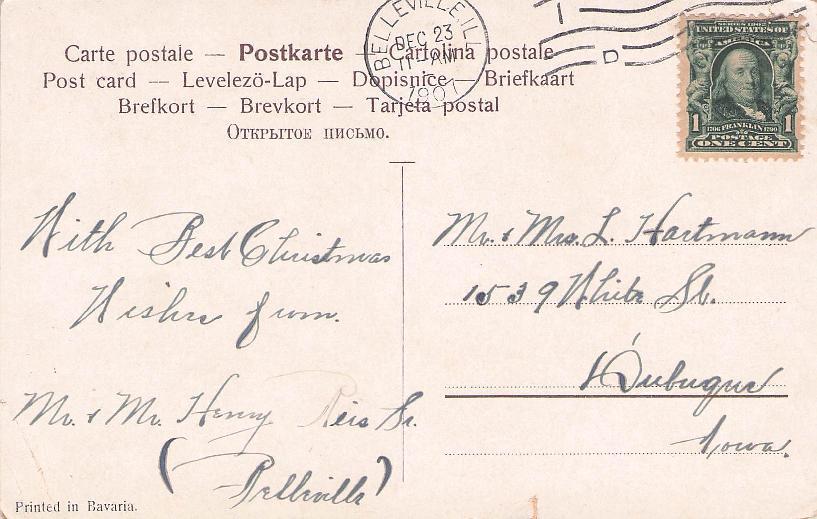 BELLEVILLE, ILL
DEC 23
11 - AM
1907
I
D
SERIES 1902
UNITED STATES OF
AMERICA
1 1706 FRANKLIN 1790 1
POSTAGE
ONE CENT
Carte postale — Postkarte — Cartolina postale
Post card — Levelezö-Lap — Dopisnice — Briefkaart
Brefkort — Brevkort — Tarjeta postal
Открытое письмо.
With Best Christmas
Wishes from.
Mr. & Mr. Henry Reis Sr.
(Belleville)
Mr. & Mrs. L. Hartmann
1539 White St.
Dubuque
Iowa.
Printed in Bavaria.